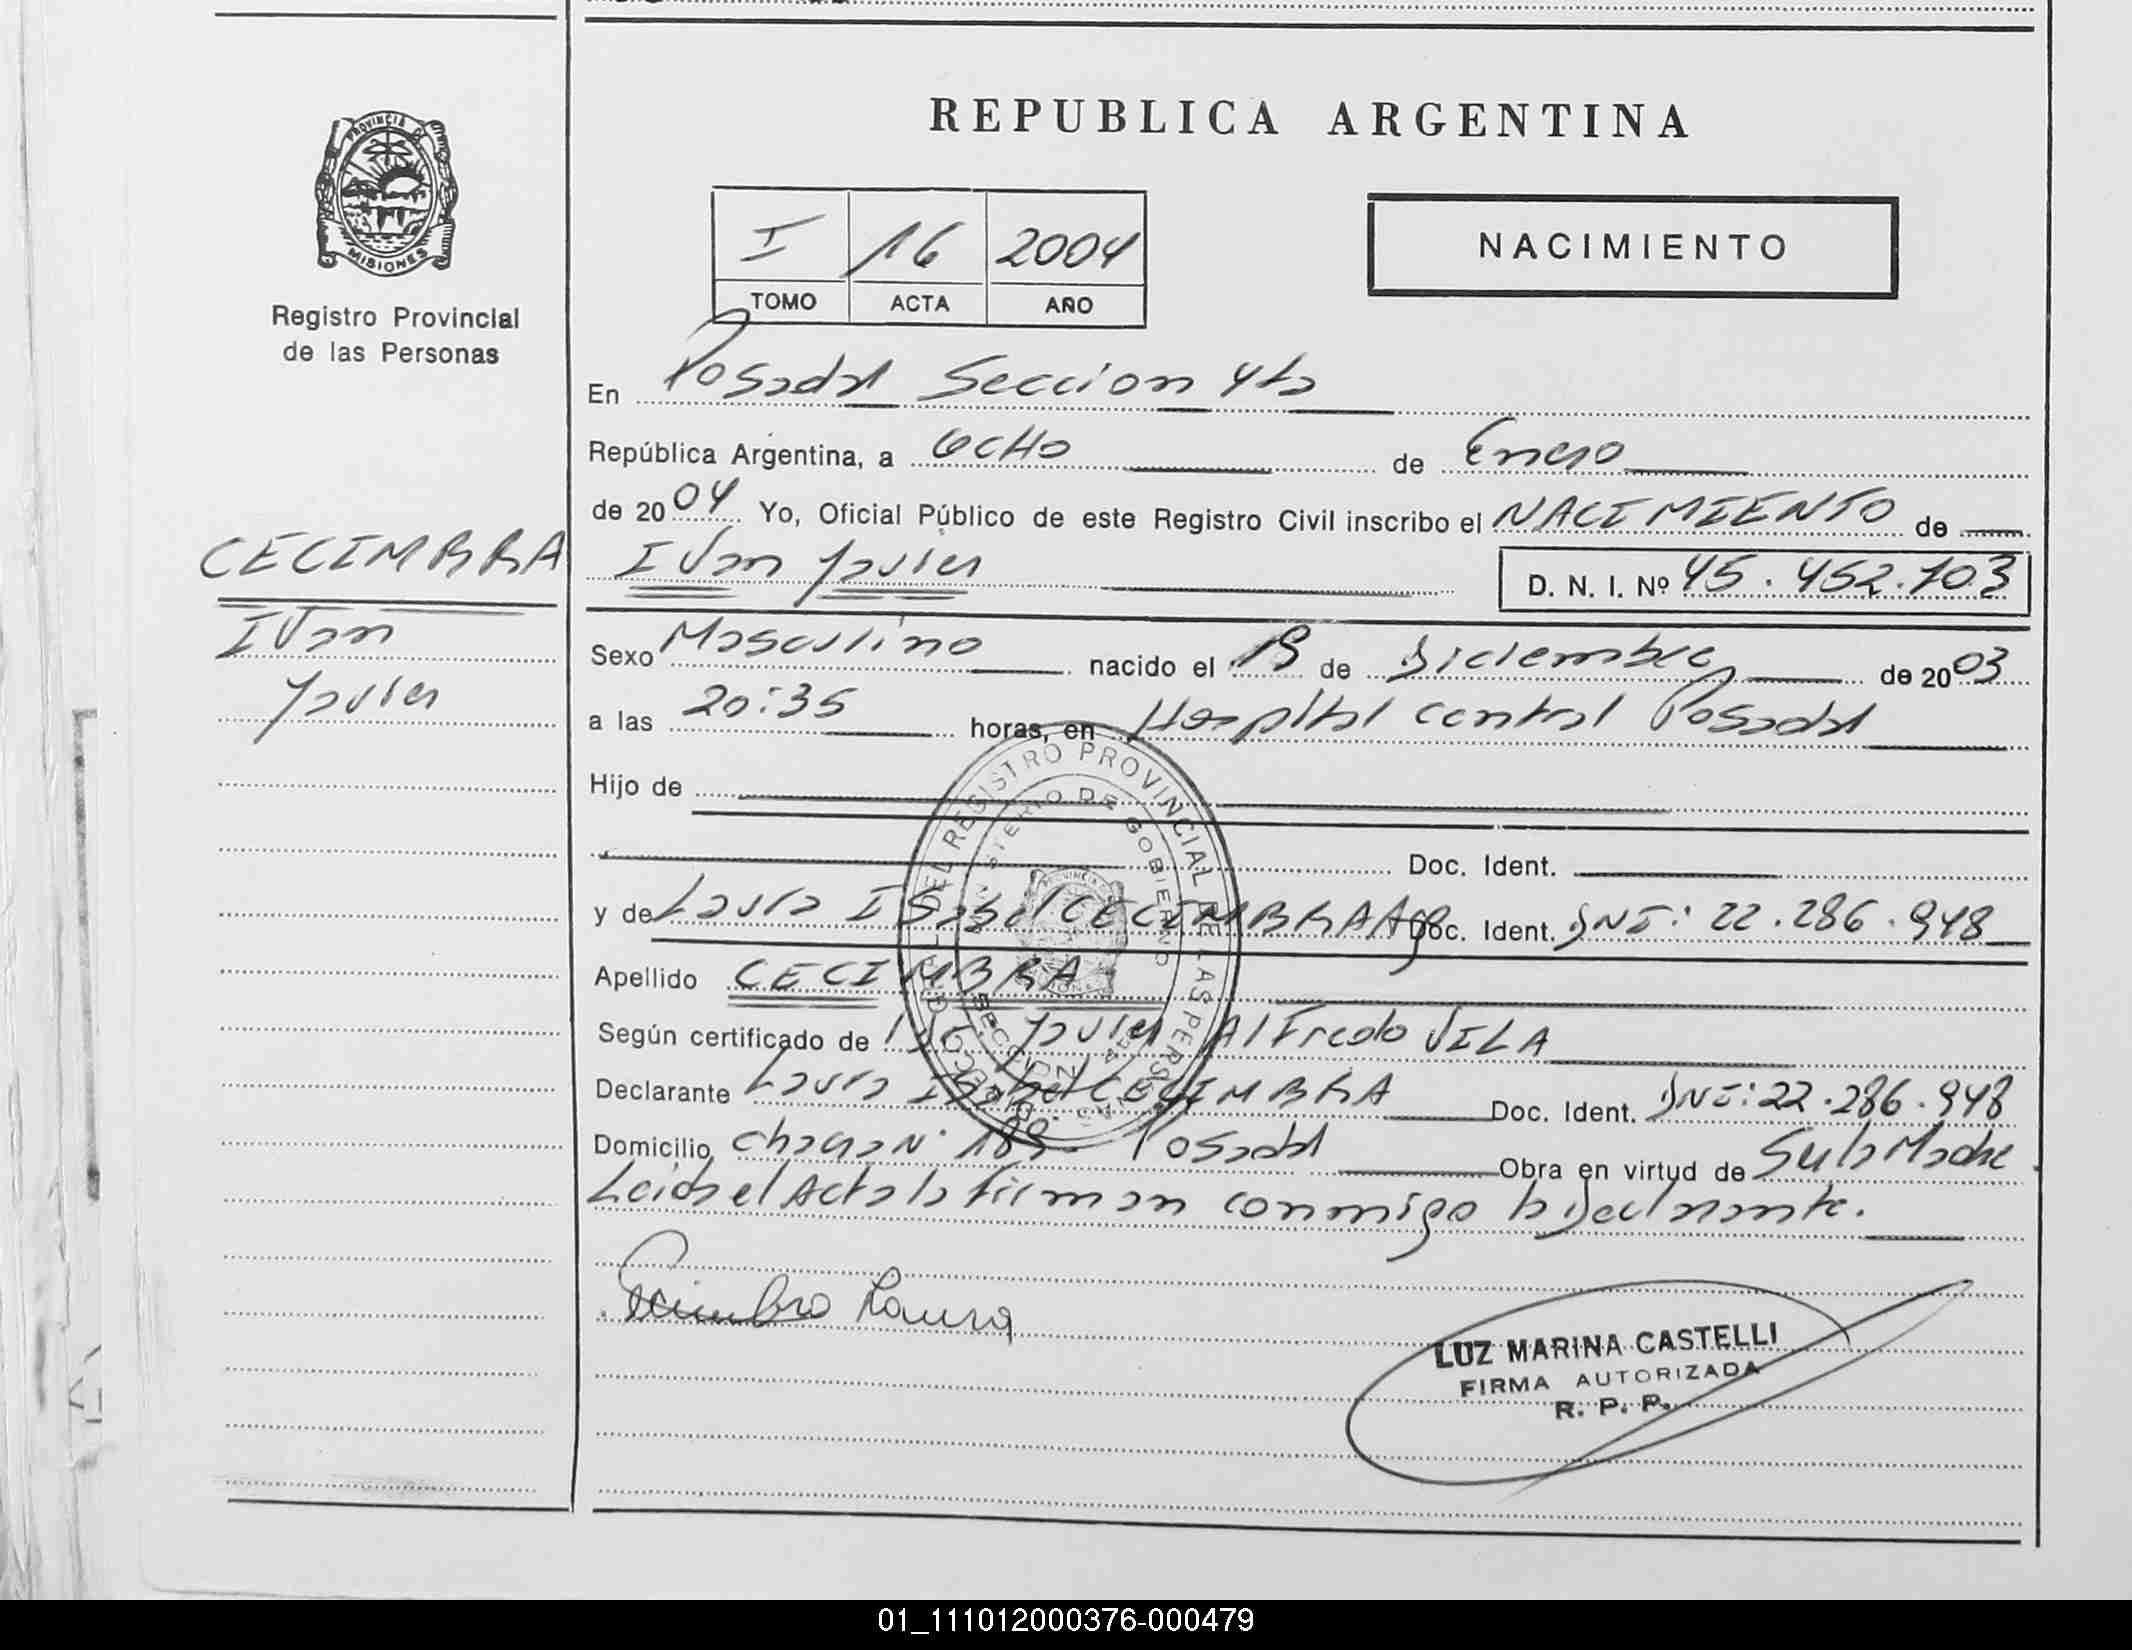 REPUBLICA ARGENTINA
PROVINCIA DE
MISIONES
Registro Provincial
de las Personas
I 16 2004
TOMO ACTA AÑO
NACIMIENTO
En Posadas Seccion 4ta
República Argentina, a OCHO de Enero
de 2004 Yo, Oficial Público de este Registro Civil inscribo el NACIMIENTO de
CECIMBRA
Ivan Javier D. N. I. Nº 45.452.703
Ivan
Javier
Sexo Masculino nacido el de Diciembre de 2003
a las 20:35 horas, en Hospital Central Posadas
Hijo de
Doc. Ident.
y de Laura Isabel CECIMBRA Doc. Ident. DNI: 22.286.948
Apellido CECIMBRA
Según certificado de Javier Alfredo VILA
Declarante Laura Isabel CECIMBRA Doc. Ident. DNI: 22.286.948
Domicilio Posadas Obra en virtud de Ser la Madre.
Leida el Acta la firman conmigo la declarante.
Cecimbra Laura
LUZ MARINA CASTELLI
FIRMA AUTORIZADA
R. P. P.
DEL REGISTRO PROVINCIAL DE LAS PERSONAS
MINISTERIO DE GOBIERNO
SECCION 4ta
01_111012000376-000479